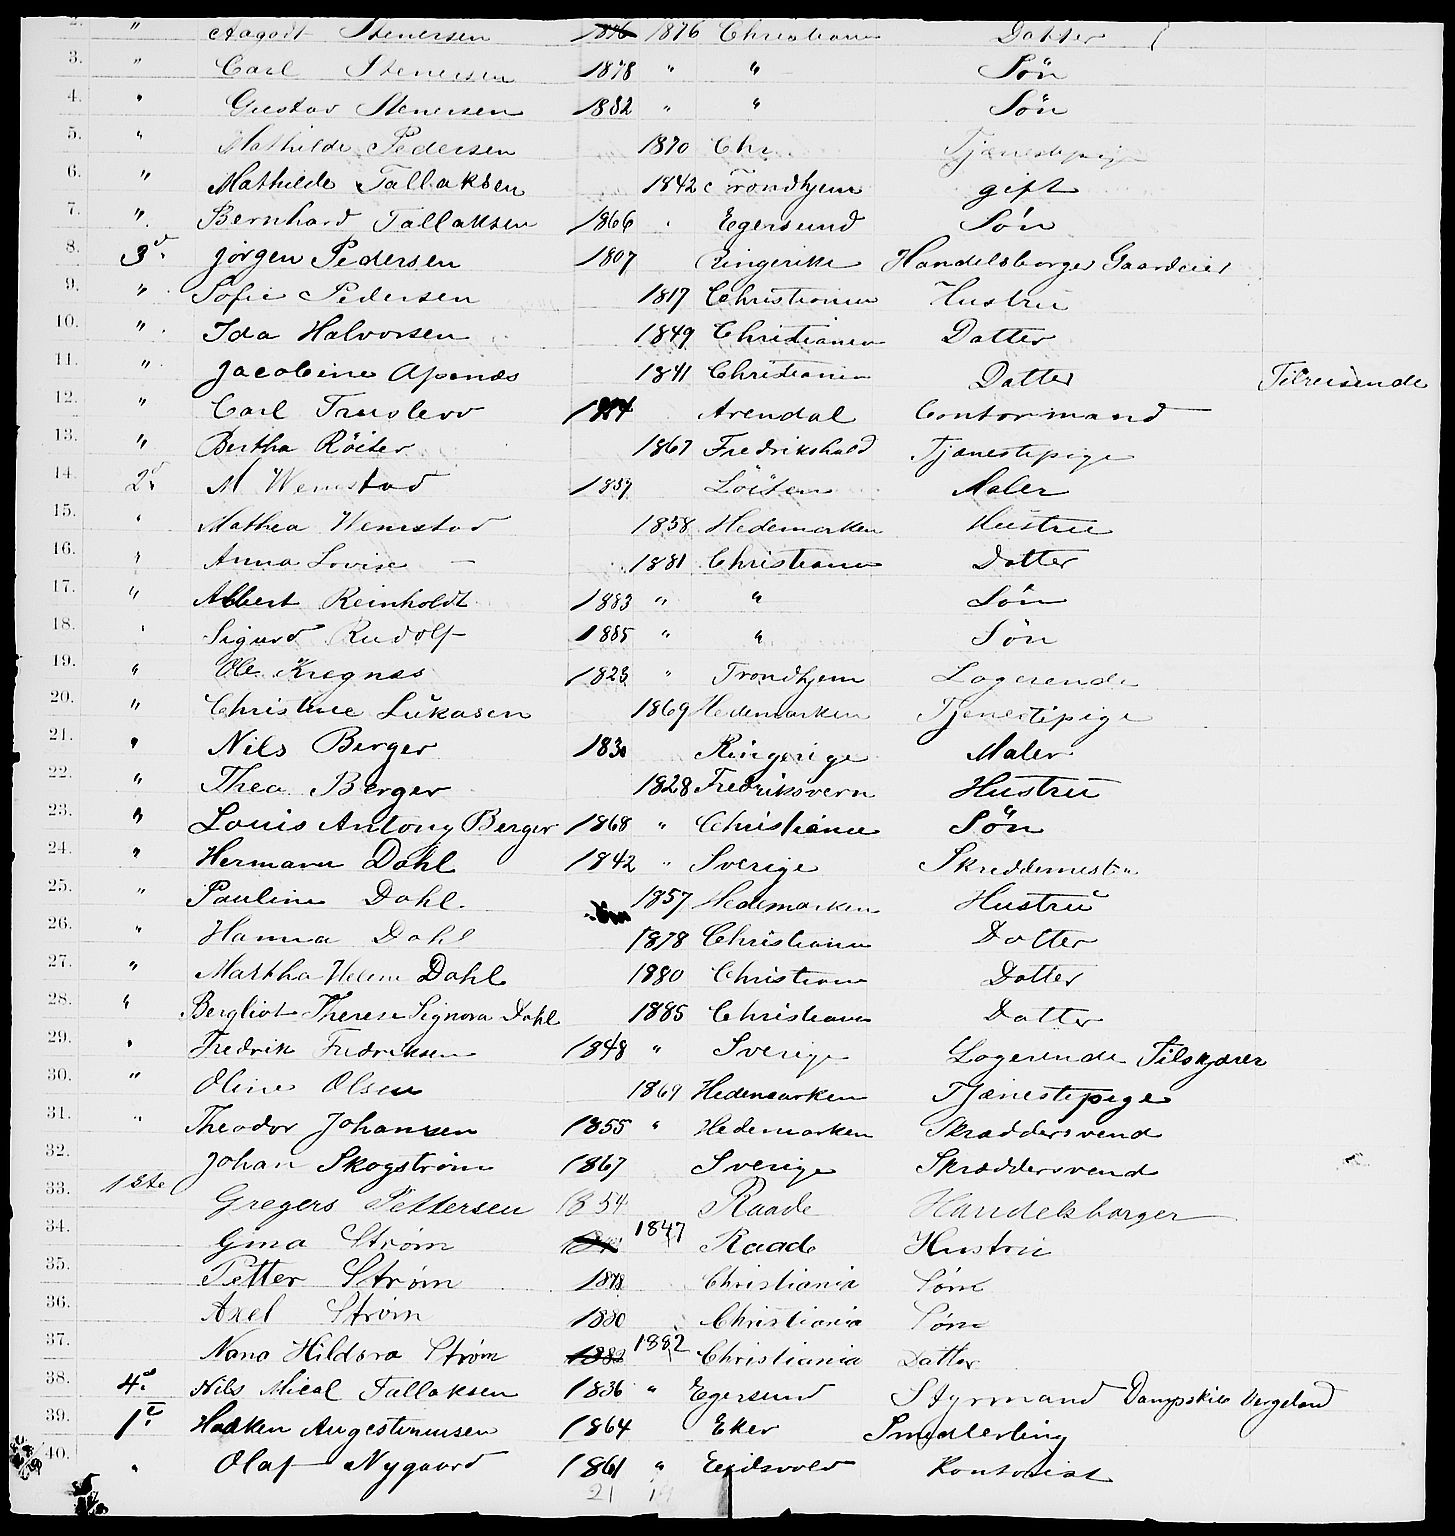 2. " Aagodt Stenersen 1876 1876 Christiania Datter
3. " Carl Stenersen 1878 " " Søn
4. " Gustav Stenersen 1882 " " Søn
5. " Mathilde Pedersen 1870 Chr. Tjenestepige
6. " Mathilde Tallaksen 1842 Trondhjem gift
7. " Bernhard Tallaksen 1866 Egersund Søn
8. 3d. Jørgen Pedersen 1807 Ringerike Handelsborger Gaardeier
9. " Sofie Pedersen 1817 Christiania Hustru
10. " Ida Halvorsen 1849 Christiania Datter
11. " Jacobine Apenæs 1841 Christiania Datter Tilreisende
12. " Carl Truslew Arendal Contormand
13. " Bertha Röiter 1867 Fredrikshald Tjenestepige
14. 2d. M Wemstad 1859 Löiten Maler
15. " Mathea Wemstad 1858 Hedemarken Hustru
16. " Anna Lovise — 1881 Christiania Datter
17. " Albert Reinholdt 1883 " " Søn
18. " Sigurd Rudolf 1885 " " Søn
19. " Ole Kregnæs 1823 " Trondhjem Logerende
20. " Christine Lukasen 1869 Hedemarken Tjenestepige
21. " Nils Berger 1830 Ringerige Maler
22. " Thea Berger 1828 Fredriksvern Hustru
23. " Louis Antony Berger 1868 " Christiania Søn
24. " Hermann Dahl 1842 " Sverige Skreddemester
25. " Pauline Dahl 1857 Hedemarken Hustru
26. " Hanna Dahl 1878 Christiania Datter
27. " Martha Helene Dahl 1880 Christiania Datter
28. " Bergliot Therese Signora Dahl 1885 Christiania Datter
29. " Fredrik Fredriksen 1848 " Sverige Logerende Tilskjærer
30. " Oline Olsen 1869 Hedemarken Tjenestepige
31. " Theodor Johansen 1855 " Hedemarken Skræddersvend
32. Johan Skogstrøm 1867 Sverige Skræddersvend
33. 1ste Gregers Pettersen 1854 Raade Handelsborger
34. Gina Strøm 1847 Raade Hustru
35. Petter Strøm 1878 Christiania Sønn
36. Axel Strøm 1880 Christiania Sønn
37. Nana Hildora Strøm 1883 1882 Christiania Datter
38. 4d. Nils Mical Tallaksen 1836 " Egersund Styrmand Dampskib Vergeland
39. 1e. Haaken Augestinusen 1864 Eker Smedlerling
40. " Olaf Nygaard 1861 " Eidsvold Kontorist
21 19